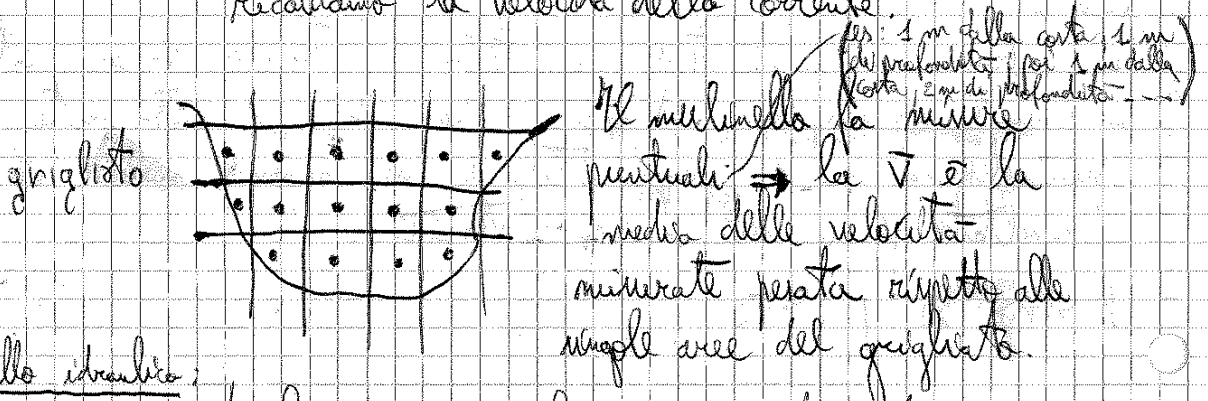 ricaviamo la velocità della corrente.
(es: 1 m dalla costa, 1 m
di profondità; poi 1 m dalla
costa, 2 m di profondità ----)
Il mulinello fa misure
grigliato
puntuali ⇒ la V̄ è la
media delle velocità
misurate pesata rispetto alle
singole aree del grigliato.
llo idraulico: